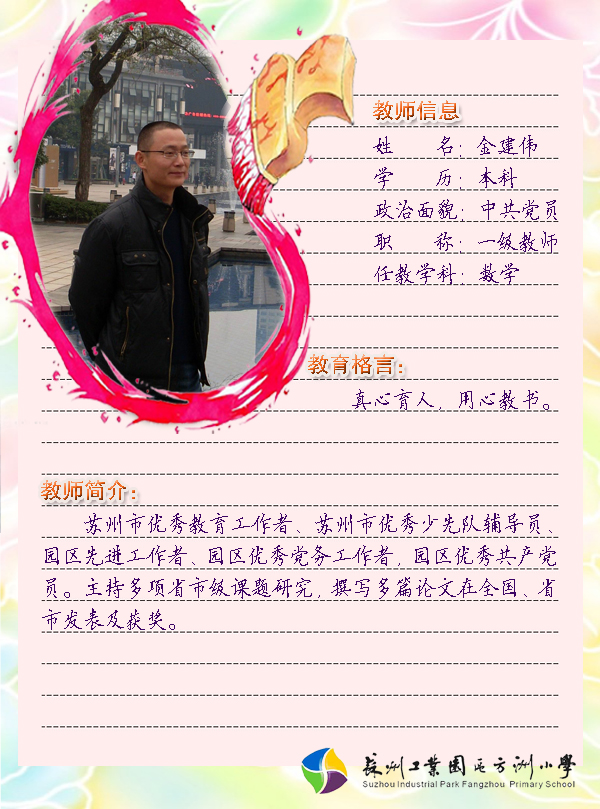 教师信息
姓 名：金建伟
学 历：本科
政治面貌：中共党员
职 称：一级教师
任教学科：数学
教育格言：
真心育人，用心教书。
教师简介：
苏州市优秀教育工作者、苏州市优秀少先队辅导员、
园区先进工作者、园区优秀党务工作者，园区优秀共产党
员。主持多项省市级课题研究，撰写多篇论文在全国、省
市发表及获奖。
苏州工业园区方洲小学
Suzhou Industrial Park Fangzhou Primary School